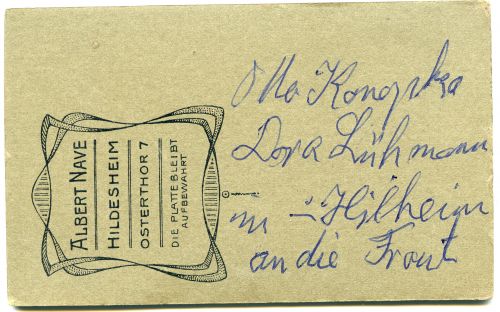 ALBERT NAVE
HILDESHEIM
OSTERTHOR 7
DIE PLATTE BLEIBT
AUFBEWAHRT
Otto Konopka
Dora Lühmann
in Hilheim
an die Front